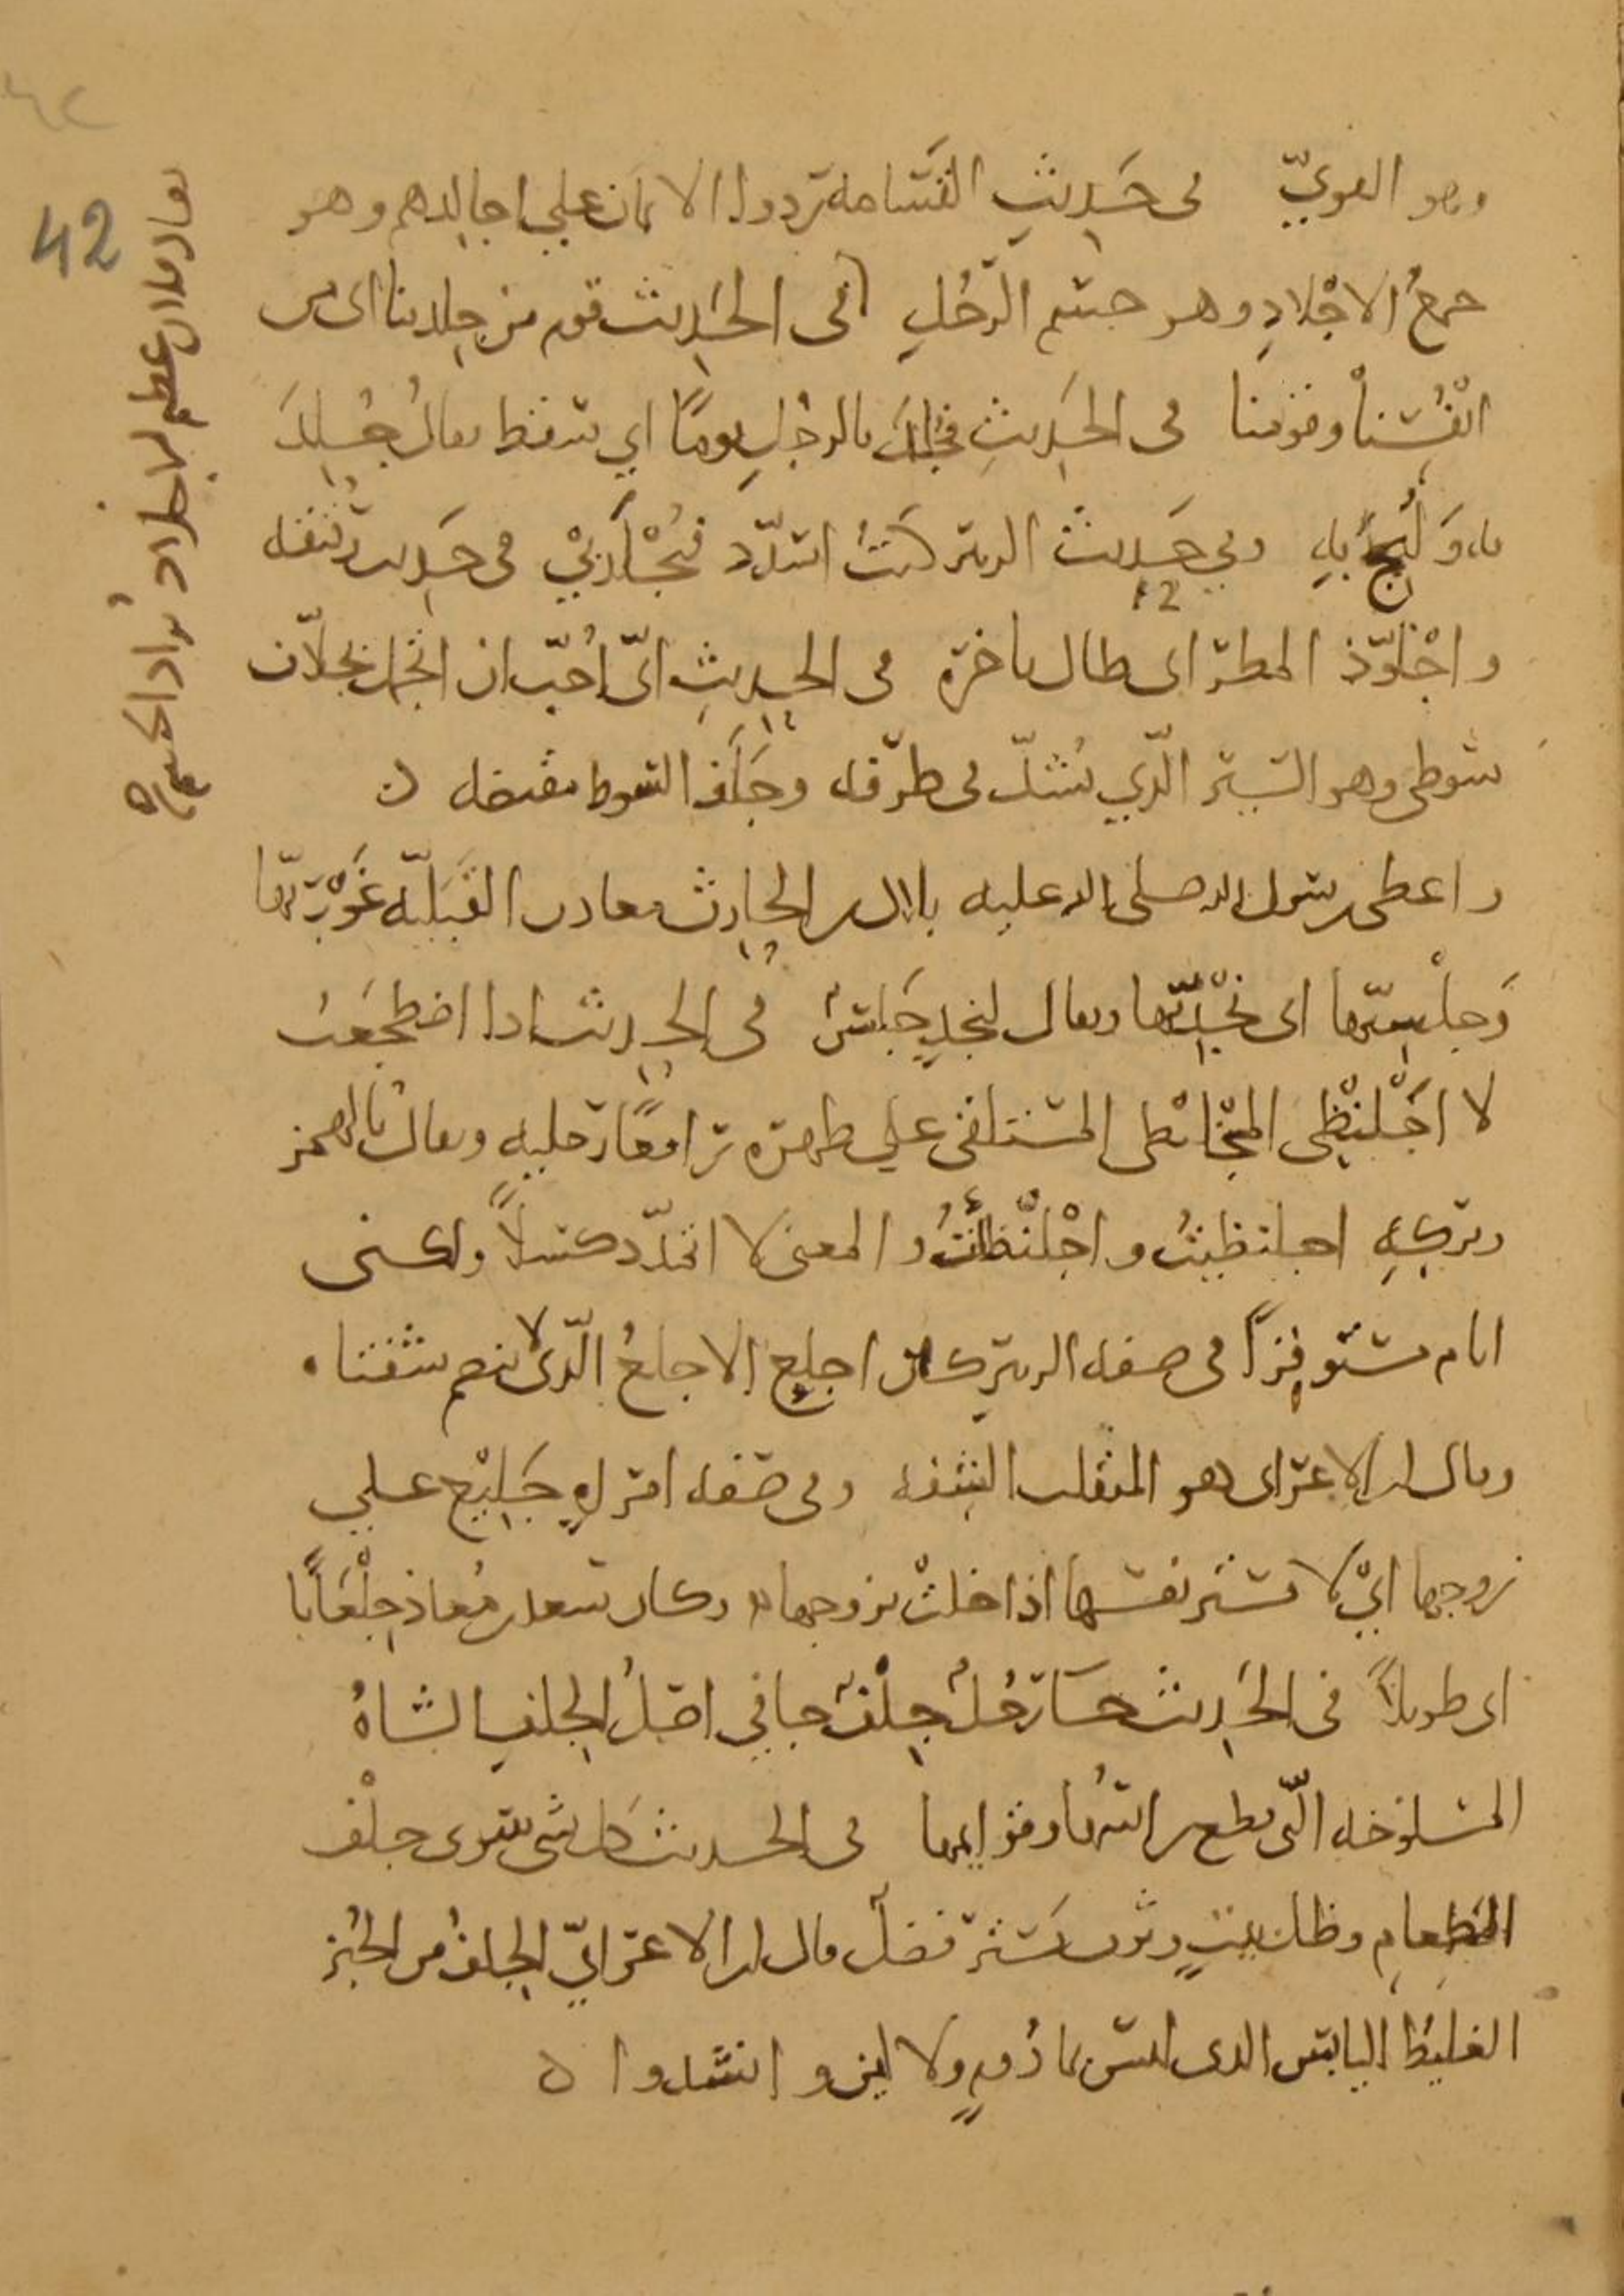 وهو القويّ في حَدِيثِ القَسَامة ردوا الايمان علي اجالدهم وهو
جمعُ الاجْلادِ وهو جسم الرّجُلِ في الحَدِيث قوم من جِلدتنا اى من
انْفُسِنا وقومنا في الحَدِيثِ فجُلِدَ بالرجُلِ نومًا اي سقط يقالُ جُلِدَ
به وَلُبِجَ به وفي حَدِيث الزبير كنتُ اتشدّد فيُجْلَدُ بِي في حَدِيث رُقيقه
واجْلَوّذ المطر اى طال تاخره في الحديثِ انّى اُحبّ ان اتجمل بجلّان
سوطى وهو السير الّذي يُشدّ في طرفه وجَلَز السوط مقبضه ٥
واعطى رسول الله صلى الله عليه بلال بن الحارث معادن القَبَليّه غَوْرِيّها
وَجلْسِيّها اى نجْدِيّها ويقال لنجدٍ جَلسٌ في الحديث اذا اضطجعتُ
لا اجْلَنْظِى المجْلَنْظى المستلقى على ظهره رافعًا رجليهِ ويقالُ بالهمز
وتركهِ اجلنظيتُ واجْلَنْظَأْتُ والمعنى لا اتمدّد كسلًا ولكنى
انام مستوفِزًا في صفه الزبير كان اجلع الاجلعُ الّذى لا تنضم شفتاه
وقال ابن الاعرابى هو المنقلب الشفه وفى صفه امراهٍ جَلِيْع علي
زوجها ايْ لا تستر نفسها اذا خلتْ بزوجها وكان سعد بن مُعاذ جِلْعَابًا
اى طويلًا في الحَدِيث جآ رجُلٌ جِلْفٌ جافى اصلُ الجلفِ الشاةُ
المسلوخه الّتى قطع راسُها وقوايمها في الحديث كل شى سوى جلْف
الطعامِ وظل بيتٍ وثوب يَستر فضلٌ قال ابن الاعرابيّ الجلفُ من الخُبز
الغليظ اليابس الذى ليس بمادُومٍ ولا لين وانشدوا ٥
42